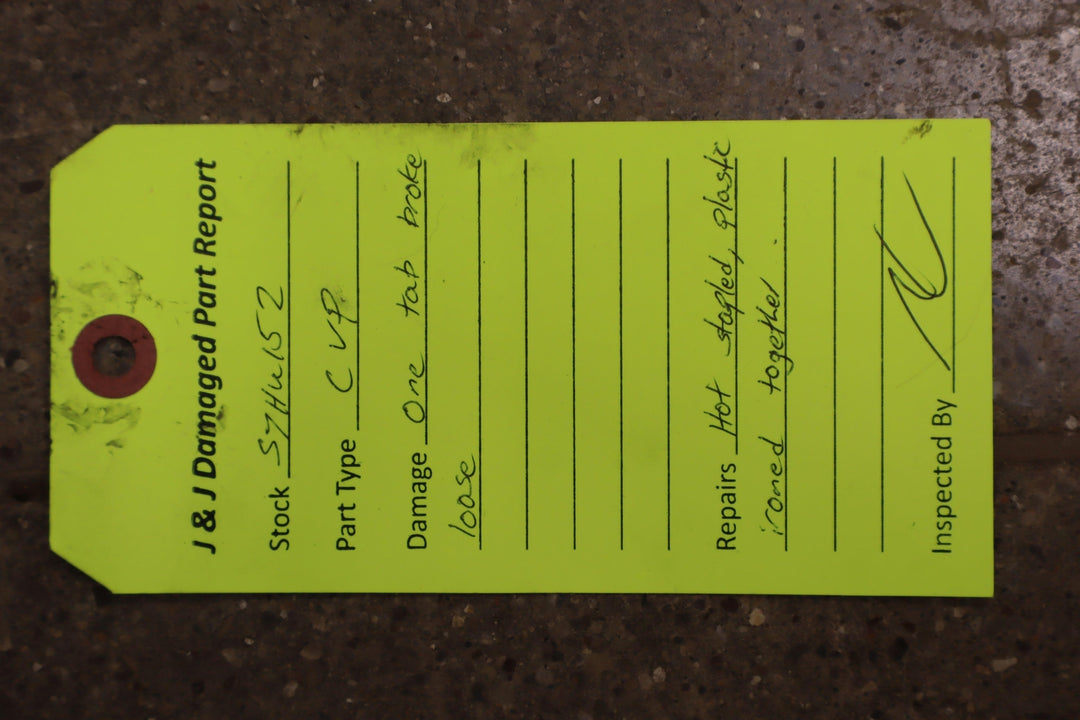 J & J Damaged Part Report
Stock SYHU152
Part Type CVP
Damage One tab broke
loose
Repairs Hot stapled, plastic
ironed together.
Inspected By